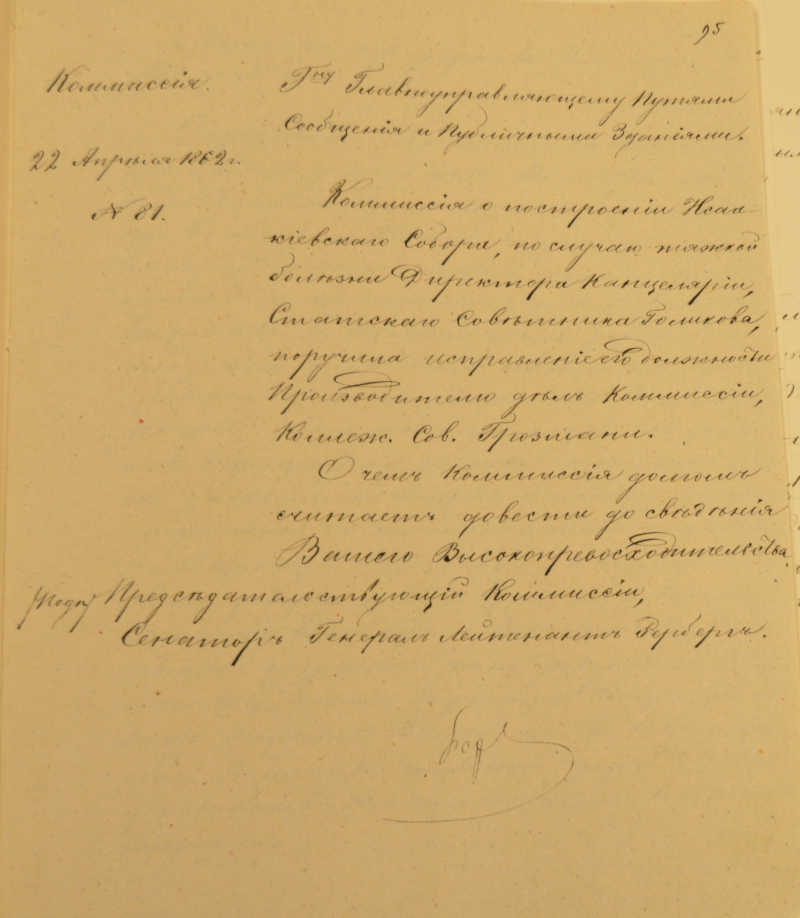 95
Коммиссія.
22 Апрѣля 1862 г.
№ 81.
Гну Главноуправляющему Путями
Сообщенія и Публичными Зданіями.
Коммиссія о построеніи Исаа-
кіевскаго Собора, по случаю тяжкой
болѣзни Директора Канцеляріи,
Статскаго Совѣтника Голикова,
поручила исправленіе его должности
Производителю дѣлъ Коммиссіи,
Коллеж. Сов. Грозмани.
О чемъ Коммиссія долгомъ
считаетъ довести до свѣдѣнія
Вашего Высокопревосходительства
(Подп.) Предсѣдательствующій Коммиссіи,
Сенаторъ Генералъ Лейтенантъ Герберъ.